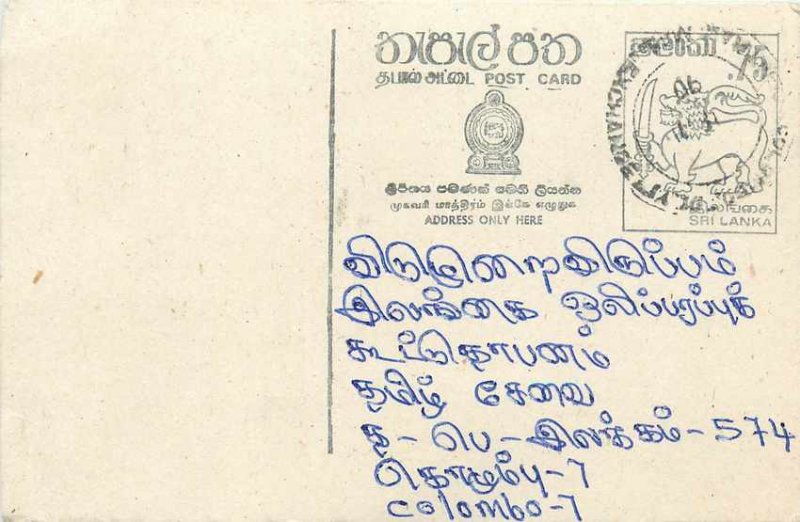 තැපැල් පත
தபால் அட்டை POST CARD
ලිපිනය පමණක් මෙහි ලියන්න
முகவரி மாத்திரம் இங்கே எழுதுக
ADDRESS ONLY HERE
இலங்கை
SRI LANKA
இலங்கை ஒலிப்பரப்புக்
கூட்டுதாபனம்
தமிழ் சேவை
த - பெ - இலக்கம் - 574
கொழும்பு - 7
Colombo - 7